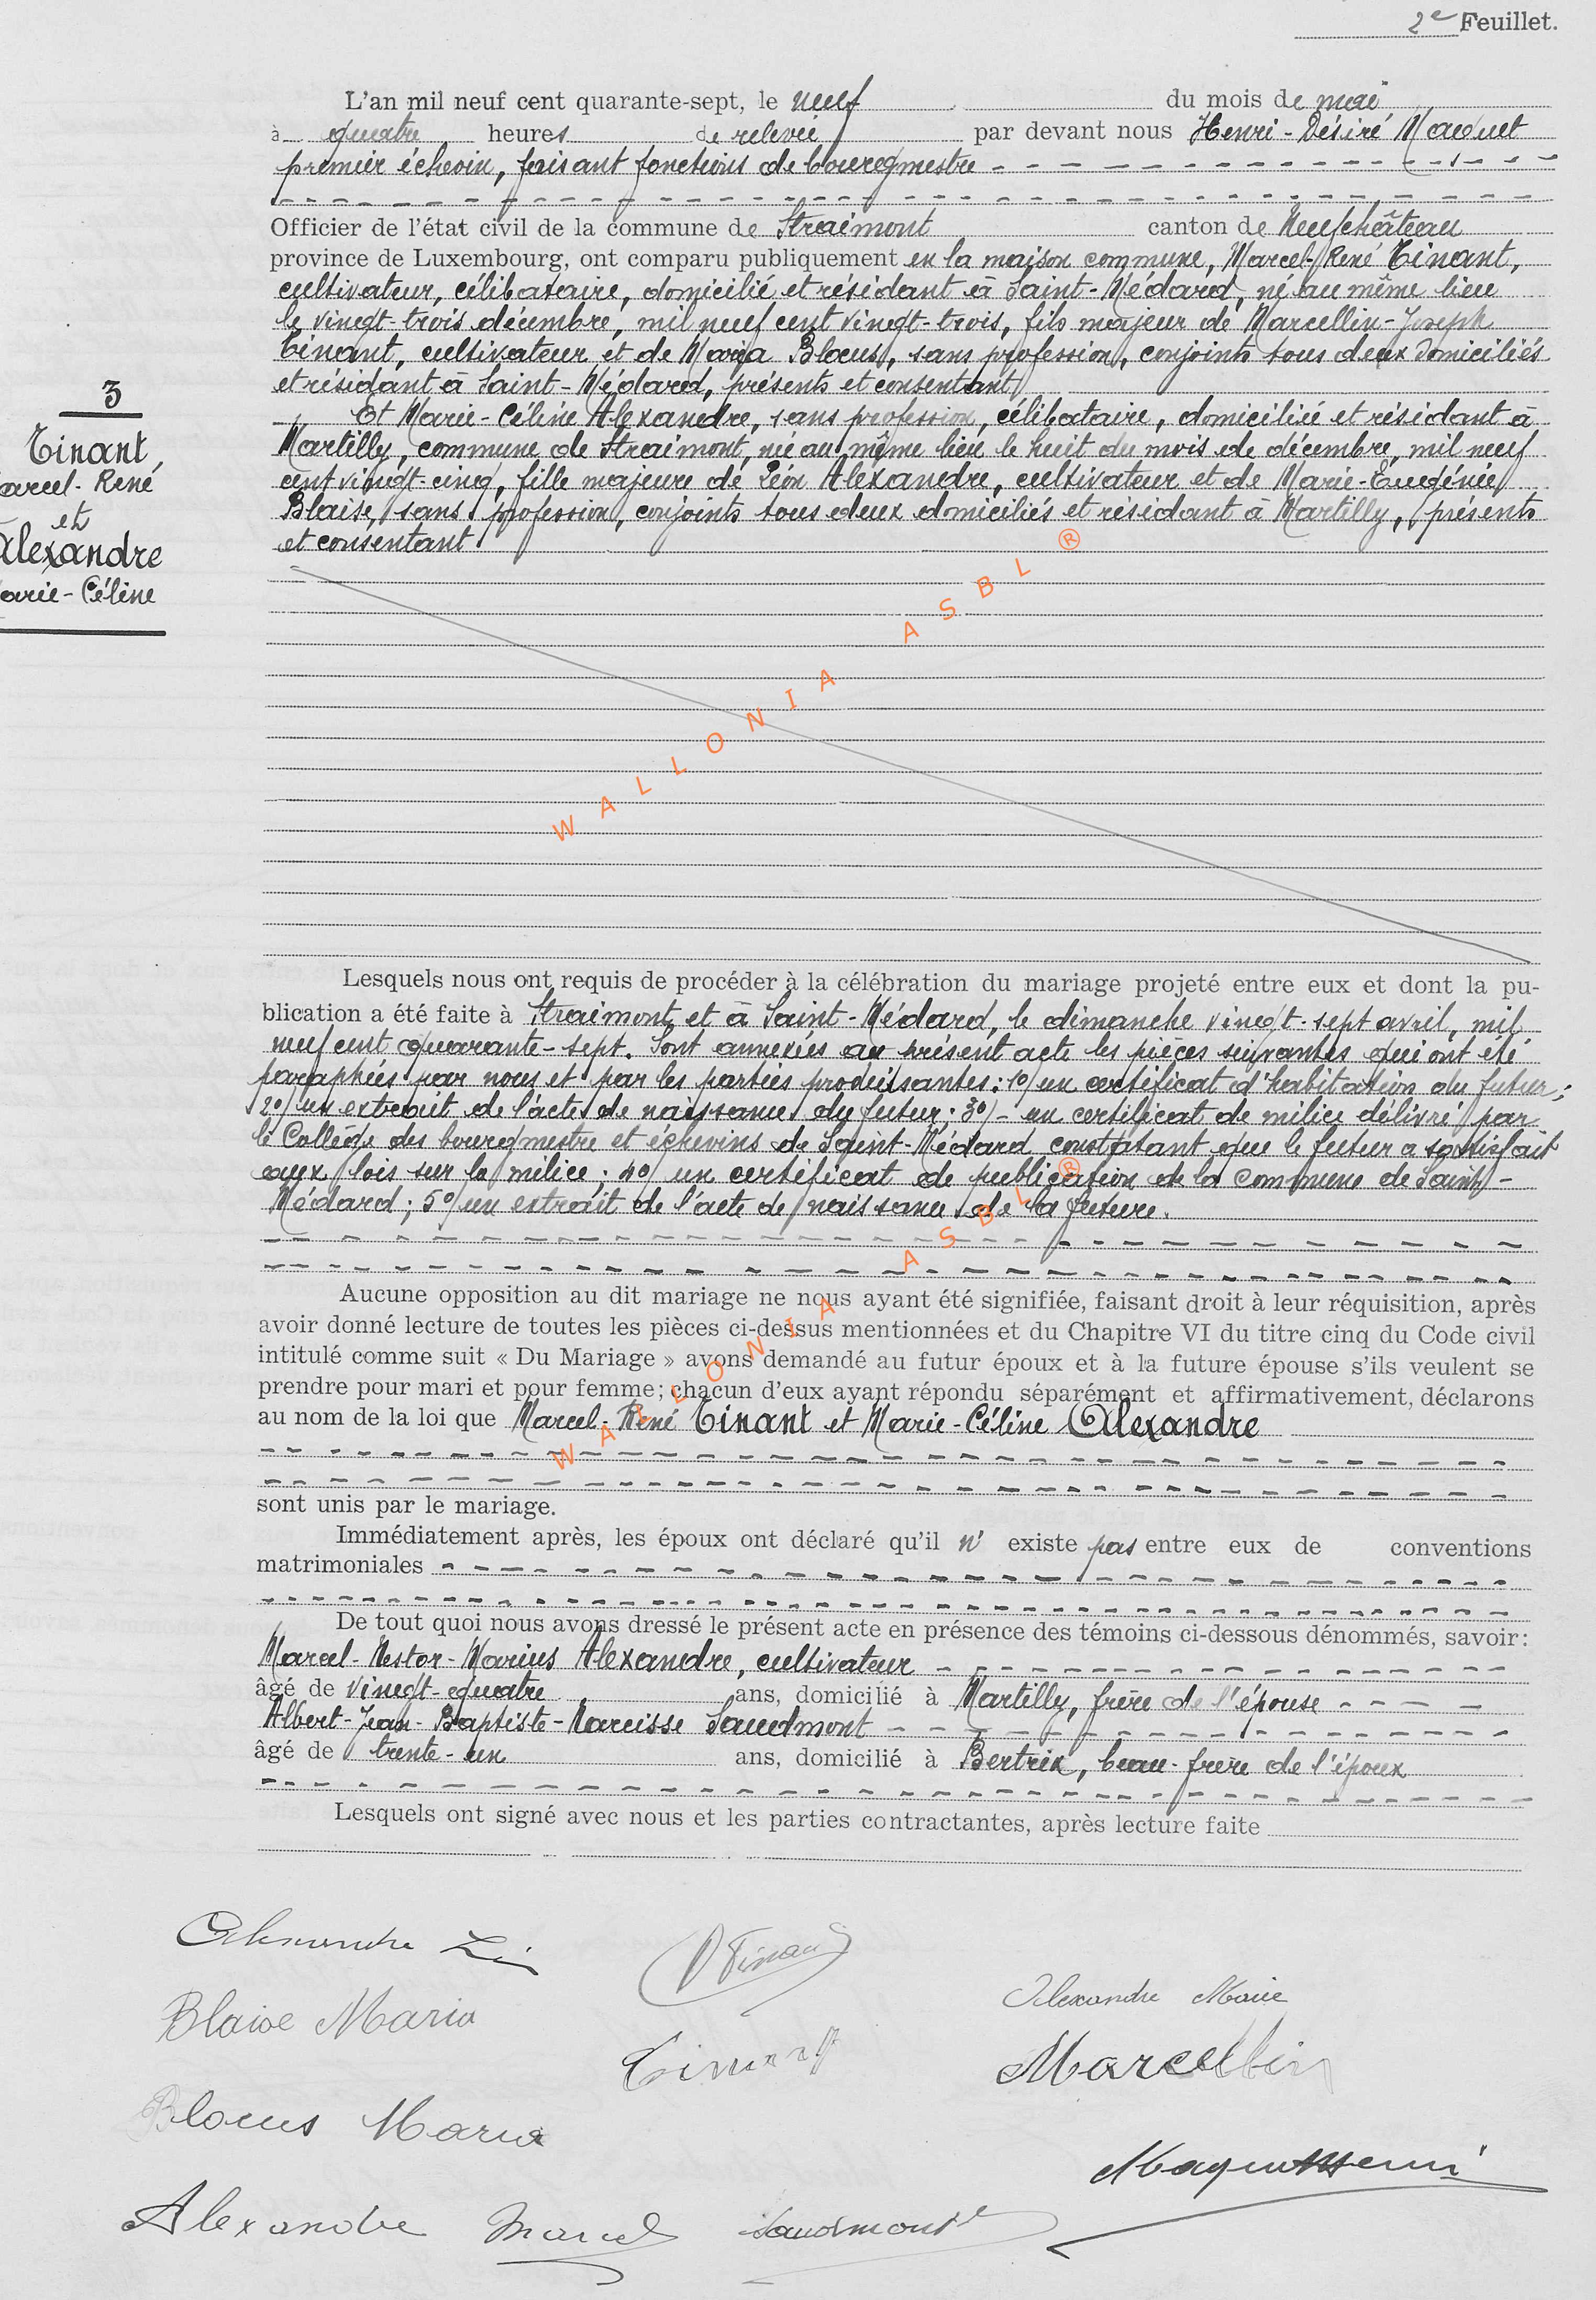 2e Feuillet.
L'an mil neuf cent quarante-sept, le neuf du mois de mai
à quatre heures de relevée par devant nous Henri-Désiré Maquet
premier échevin, faisant fonctions de bourgmestre
Officier de l'état civil de la commune de Straimont canton de Neufchâteau
province de Luxembourg, ont comparu publiquement en la maison commune, Marcel-René Tinant,
cultivateur, célibataire, domicilié et résidant à Saint-Médard, né au même lieu
le vingt-trois décembre, mil neuf cent vingt-trois, fils majeur de Marcellin-Joseph
Tinant, cultivateur et de Maria Blocus, sans profession, conjoints tous deux domiciliés
et résidant à Saint-Médard, présents et consentant
3
Tinant
arcel-René
et
Alexandre
arie-Céline
Et Marie-Céline Alexandre, sans profession, célibataire, domiciliée et résidant à
Martilly, commune de Straimont, née au même lieu le huit du mois de décembre, mil neuf
cent vingt-cinq, fille majeure de Léon Alexandre, cultivateur et de Marie-Eugénie
Blaise, sans profession, conjoints tous deux domiciliés et résidant à Martilly, présents
et consentant
WALLONIA ASBL ®
Lesquels nous ont requis de procéder à la célébration du mariage projeté entre eux et dont la pu-
blication a été faite à Straimont et à Saint-Médard, le dimanche vingt-sept avril, mil
neuf cent quarante-sept. Sont annexées au présent acte les pièces suivantes qui ont été
paraphées par nous et par les parties produisantes: 1o/ un certificat d'habitation du futur;
2o/ un extrait de l'acte de naissance du futur; 3o/- un certificat de milice délivré par
le Collège des bourgmestre et échevins de Saint-Médard constatant que le futur a satisfait
aux lois sur la milice; 4o/ un certificat de publication de la commune de Saint-
Médard; 5o/ un extrait de l'acte de naissance de la future.
WALLONIA ASBL ®
Aucune opposition au dit mariage ne nous ayant été signifiée, faisant droit à leur réquisition, après
avoir donné lecture de toutes les pièces ci-dessus mentionnées et du Chapitre VI du titre cinq du Code civil
intitulé comme suit « Du Mariage » avons demandé au futur époux et à la future épouse s'ils veulent se
prendre pour mari et pour femme; chacun d'eux ayant répondu séparément et affirmativement, déclarons
au nom de la loi que Marcel-René Tinant et Marie-Céline Alexandre
sont unis par le mariage.
Immédiatement après, les époux ont déclaré qu'il n' existe pas entre eux de conventions
matrimoniales
De tout quoi nous avons dressé le présent acte en présence des témoins ci-dessous dénommés, savoir:
Marcel-Nestor-Marius Alexandre, cultivateur
âgé de vingt-quatre ans, domicilié à Martilly, frère de l'épouse
Albert-Jean-Baptiste-Narcisse Saudmont
âgé de trente-un ans, domicilié à Bertrix, beau-frère de l'époux
Lesquels ont signé avec nous et les parties contractantes, après lecture faite
Alexandre Léon
Tinant
Alexandre Marie
Blaise Maria
Tinant
Marcellin
Blocus Maria
Maquet Henri
Alexandre Marcel
Saudmont